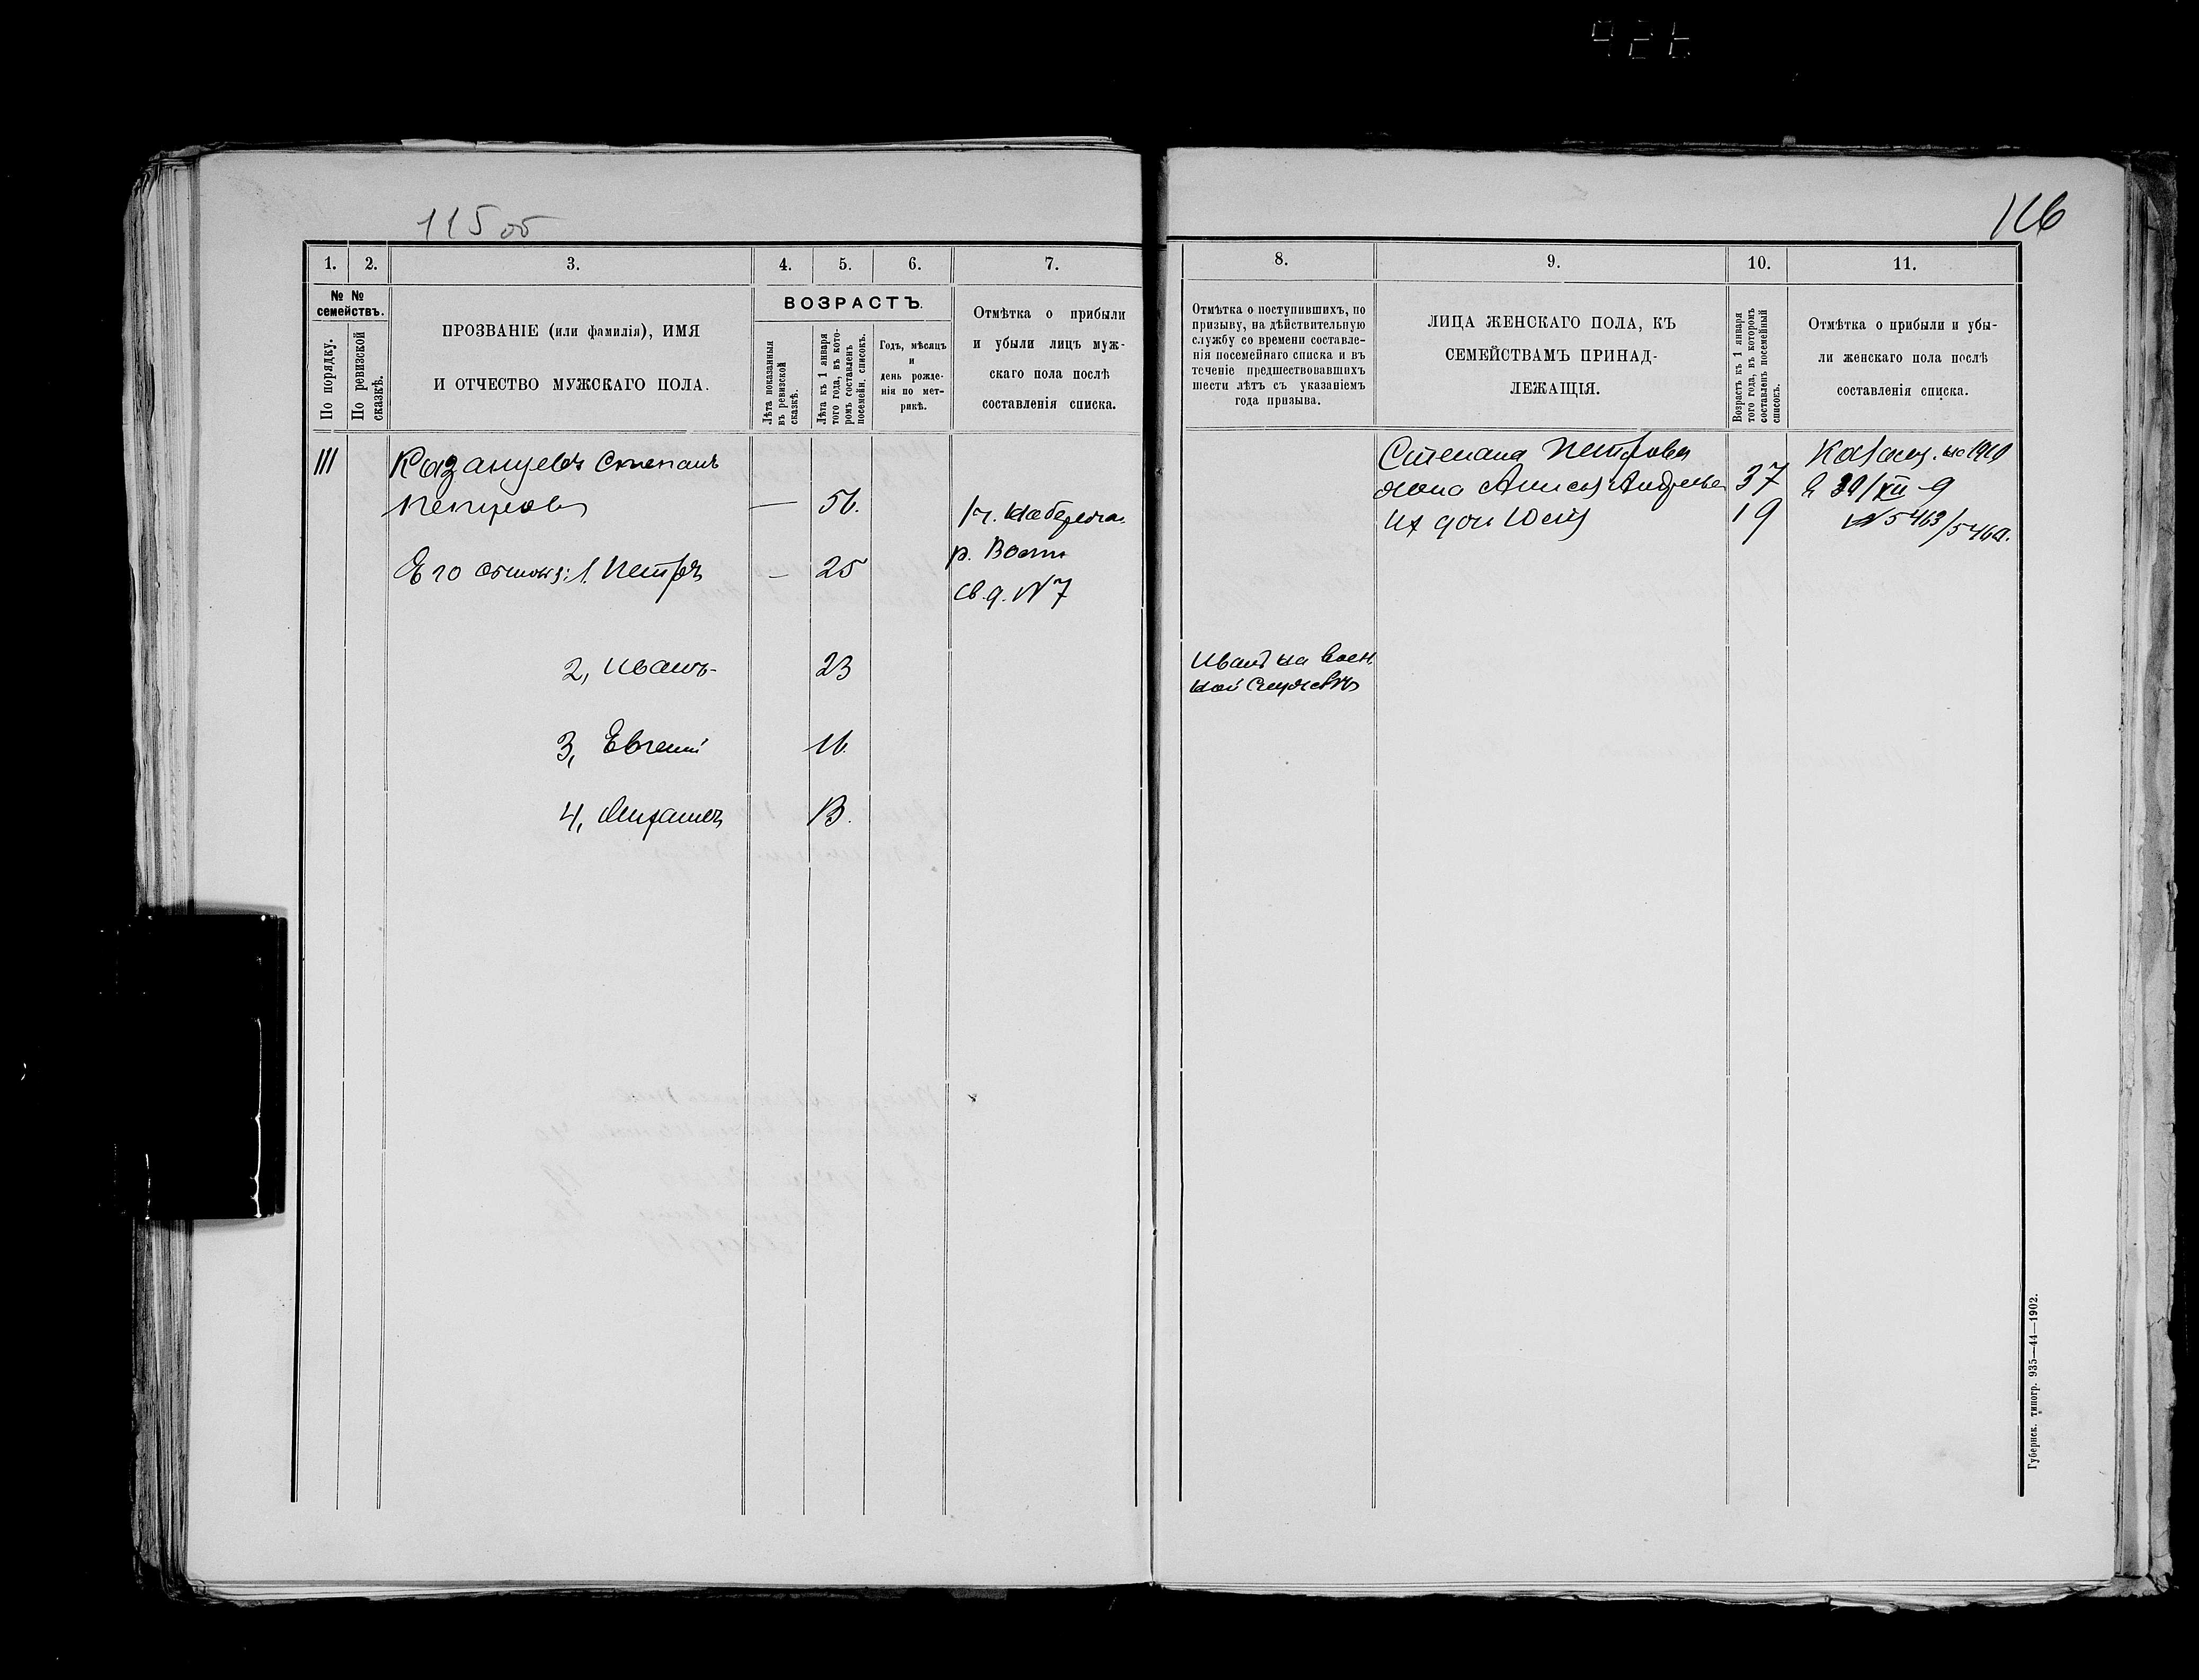 115 об
116
1. 2. 3. 4. 5. 6. 7.
№ №
семействъ.
По порядку.
По ревизской
сказкѣ.
ПРОЗВАНІЕ (или фамилія), ИМЯ
И ОТЧЕСТВО МУЖСКАГО ПОЛА.
ВОЗРАСТЪ.
Лѣта показанныя
въ ревизской
сказкѣ.
Лѣта къ 1 января
того года, въ кото-
ромъ составленъ
посемейн. списокъ.
Годъ, мѣсяцъ
и
день рожде-
нія по мет-
рикѣ.
Отмѣтка о прибыли
и убыли лицъ муж-
скаго пола послѣ
составленія списка.
111 Казанцевъ Степанъ
Петровъ — 56.
Его сыновья: 1. Петръ — 25
2, Иванъ 23
3, Евгеній 16.
4, 13.
р. Волги
№ 7
8. 9. 10. 11.
Отмѣтка о поступившихъ, по
призыву, на дѣйствительную
службу со времени составле-
нія посемейнаго списка и въ
теченіе предшествовавшихъ
шести лѣтъ съ указаніемъ
года призыва.
ЛИЦА ЖЕНСКАГО ПОЛА, КЪ
СЕМЕЙСТВАМЪ ПРИНАД-
ЛЕЖАЩІЯ.
Возрастъ къ 1 января
того года, въ которомъ
составленъ посемейный
списокъ.
Отмѣтка о прибыли и убы-
ли женскаго пола послѣ
составленія списка.
Степана Петрова
жена 37
Их дочь 19
на 1910
№ 5463/5464.
Иванъ на воен
ной службѣ
Губернск. типогр. 935—44—1902.